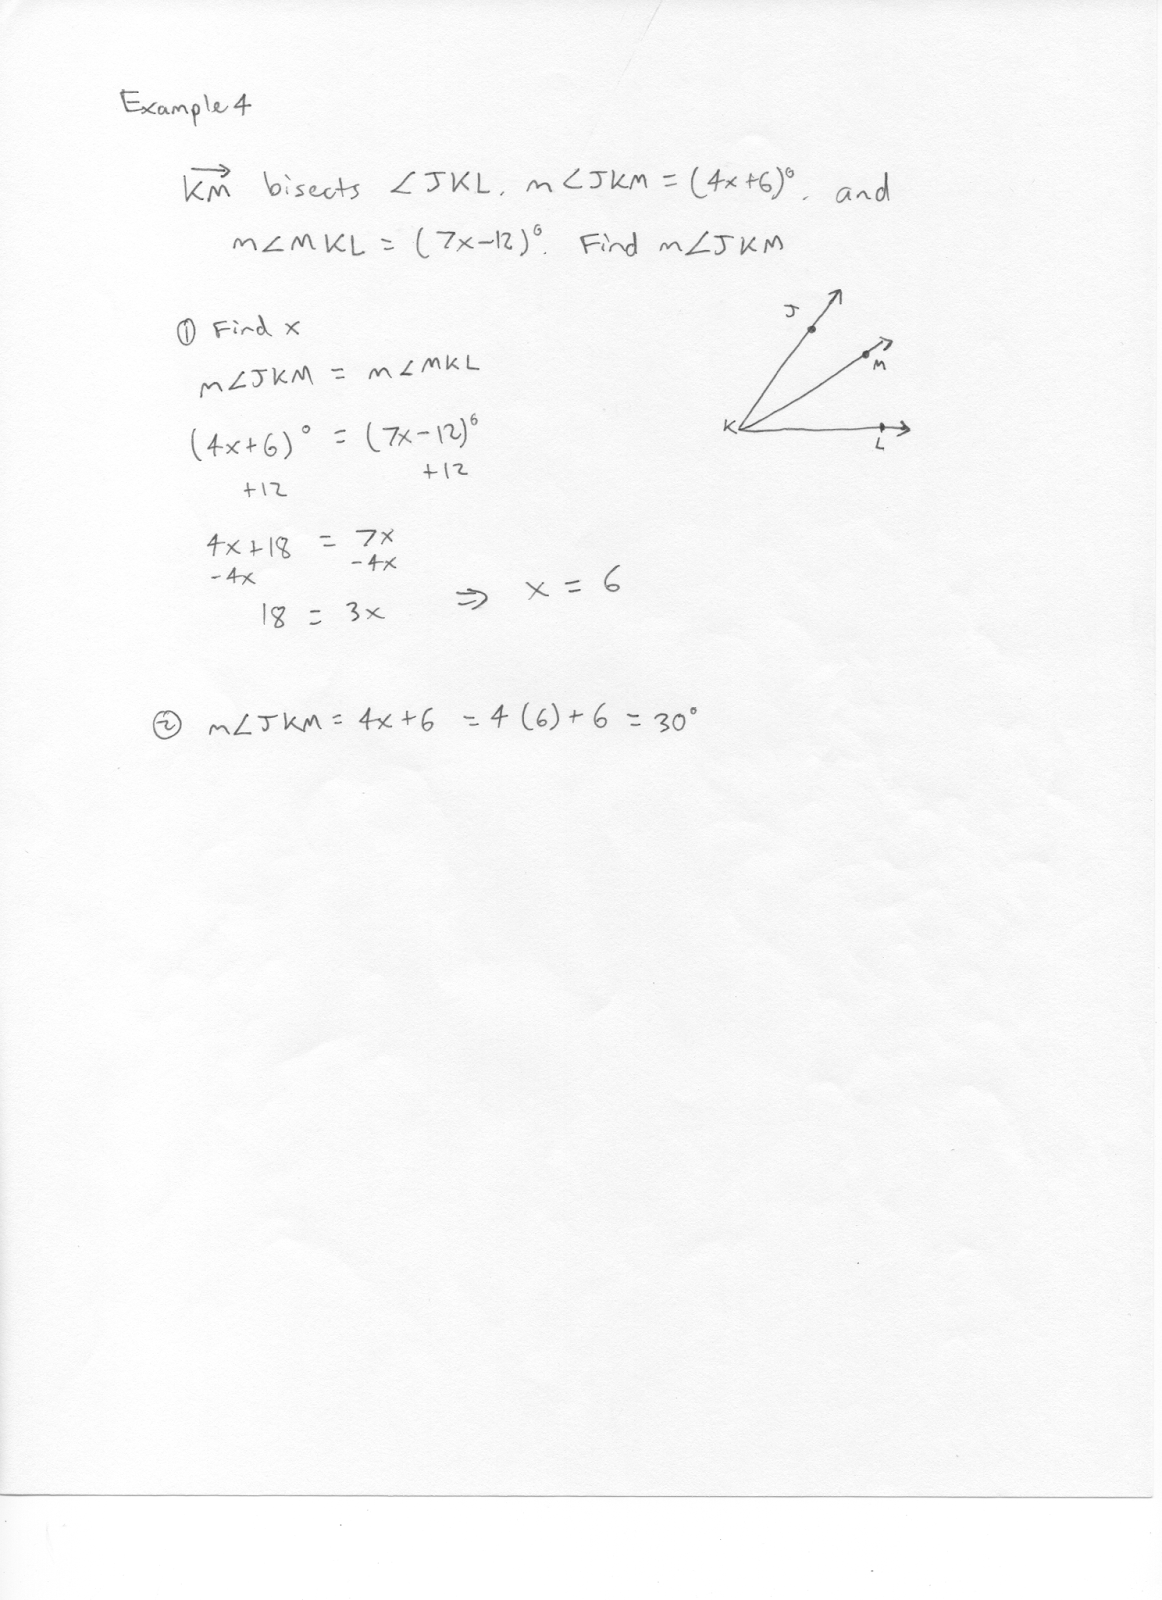 Example 4
KM bisects ∠JKL, m∠JKM = (4x+6)°, and
m∠MKL = (7x-12)°. Find m∠JKM
① Find x
m∠JKM = m∠MKL
(4x+6)° = (7x-12)°
+12 +12
4x+18 = 7x
-4x -4x
18 = 3x ⇒ x = 6
② m∠JKM = 4x+6 = 4(6)+6 = 30°
J
M
K
L